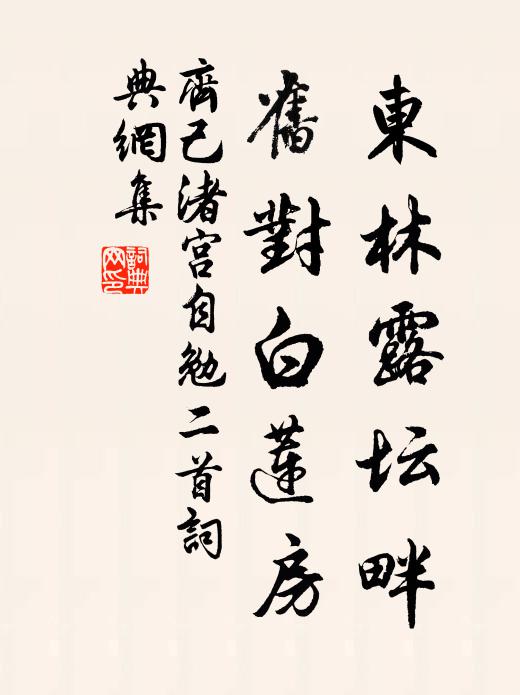 東林露坛畔
舊對白蓮房
齊己渚宫自勉二首詞
典網集
詞典
网印